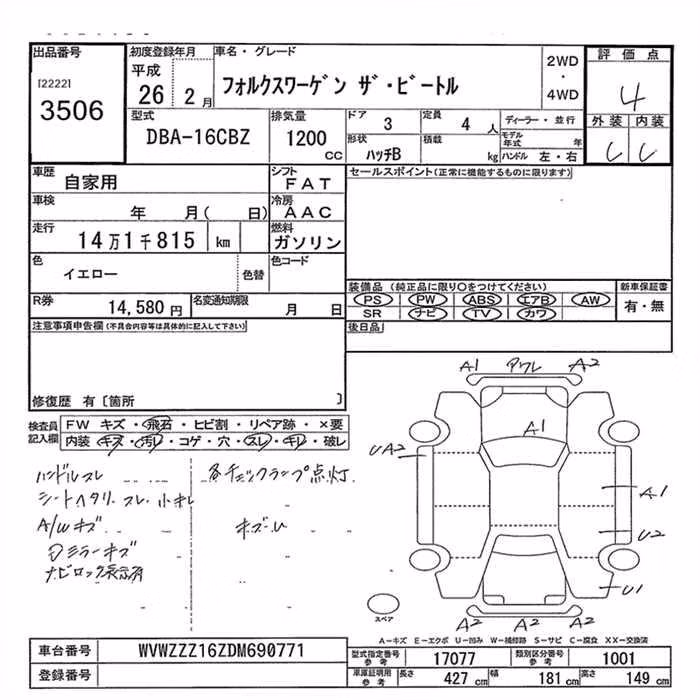 出品番号
[2222]
3506
初度登録年月
平成
26 2月
車名・グレード
フォルクスワーゲン ザ・ビートル
2WD
・
4WD
評価点
4
外装 内装
C C
型式
DBA-16CBZ
排気量
1200
cc
ドア
3
定員
4 人
形状
ハッチB
積載
kg
ディーラー・並行
モデル年式 年
ハンドル 左・右
車歴
自家用
シフト
FAT
車検
年 月( 日)
冷房
AAC
走行
14万1千815 km
燃料
ガソリン
色
イエロー
色替
色コード
R券
14,580 円
名変通知期限
月 日
セールスポイント(正常に機能するものに限ります)
装備品 (純正品に限り○をつけてください)
PS PW ABS エアB AW
SR ナビ TV カワ
新車保証書
有・無
後日品
注意事項申告欄(不具合内容等は具体的に記入して下さい)
修復歴 有〔箇所 〕
検査員記入欄
FW キズ・飛石・ヒビ割・リペア跡・×要
内装・キズ・汚レ・コゲ・穴・スレ・キレ・破レ
ハンドルスレ
シートヘタリ、スレ、小キレ
A/Wキズ
ミラーキズ
ナビロック表示有
各チェックランプ点灯
キズ・U
A1 アワレ A2
A1
UA2
A1
U2
U1
A2 A2
スペア
A-キズ E-エクボ U-凹み W-補修跡 S-サビ C-腐食 XX-交換済
車台番号
WVWZZZ16ZDM690771
登録番号
型式指定番号 参考
17077
類別区分番号 参考
1001
車庫証明用 参考
長さ 427 cm
幅 181 cm
高さ 149 cm